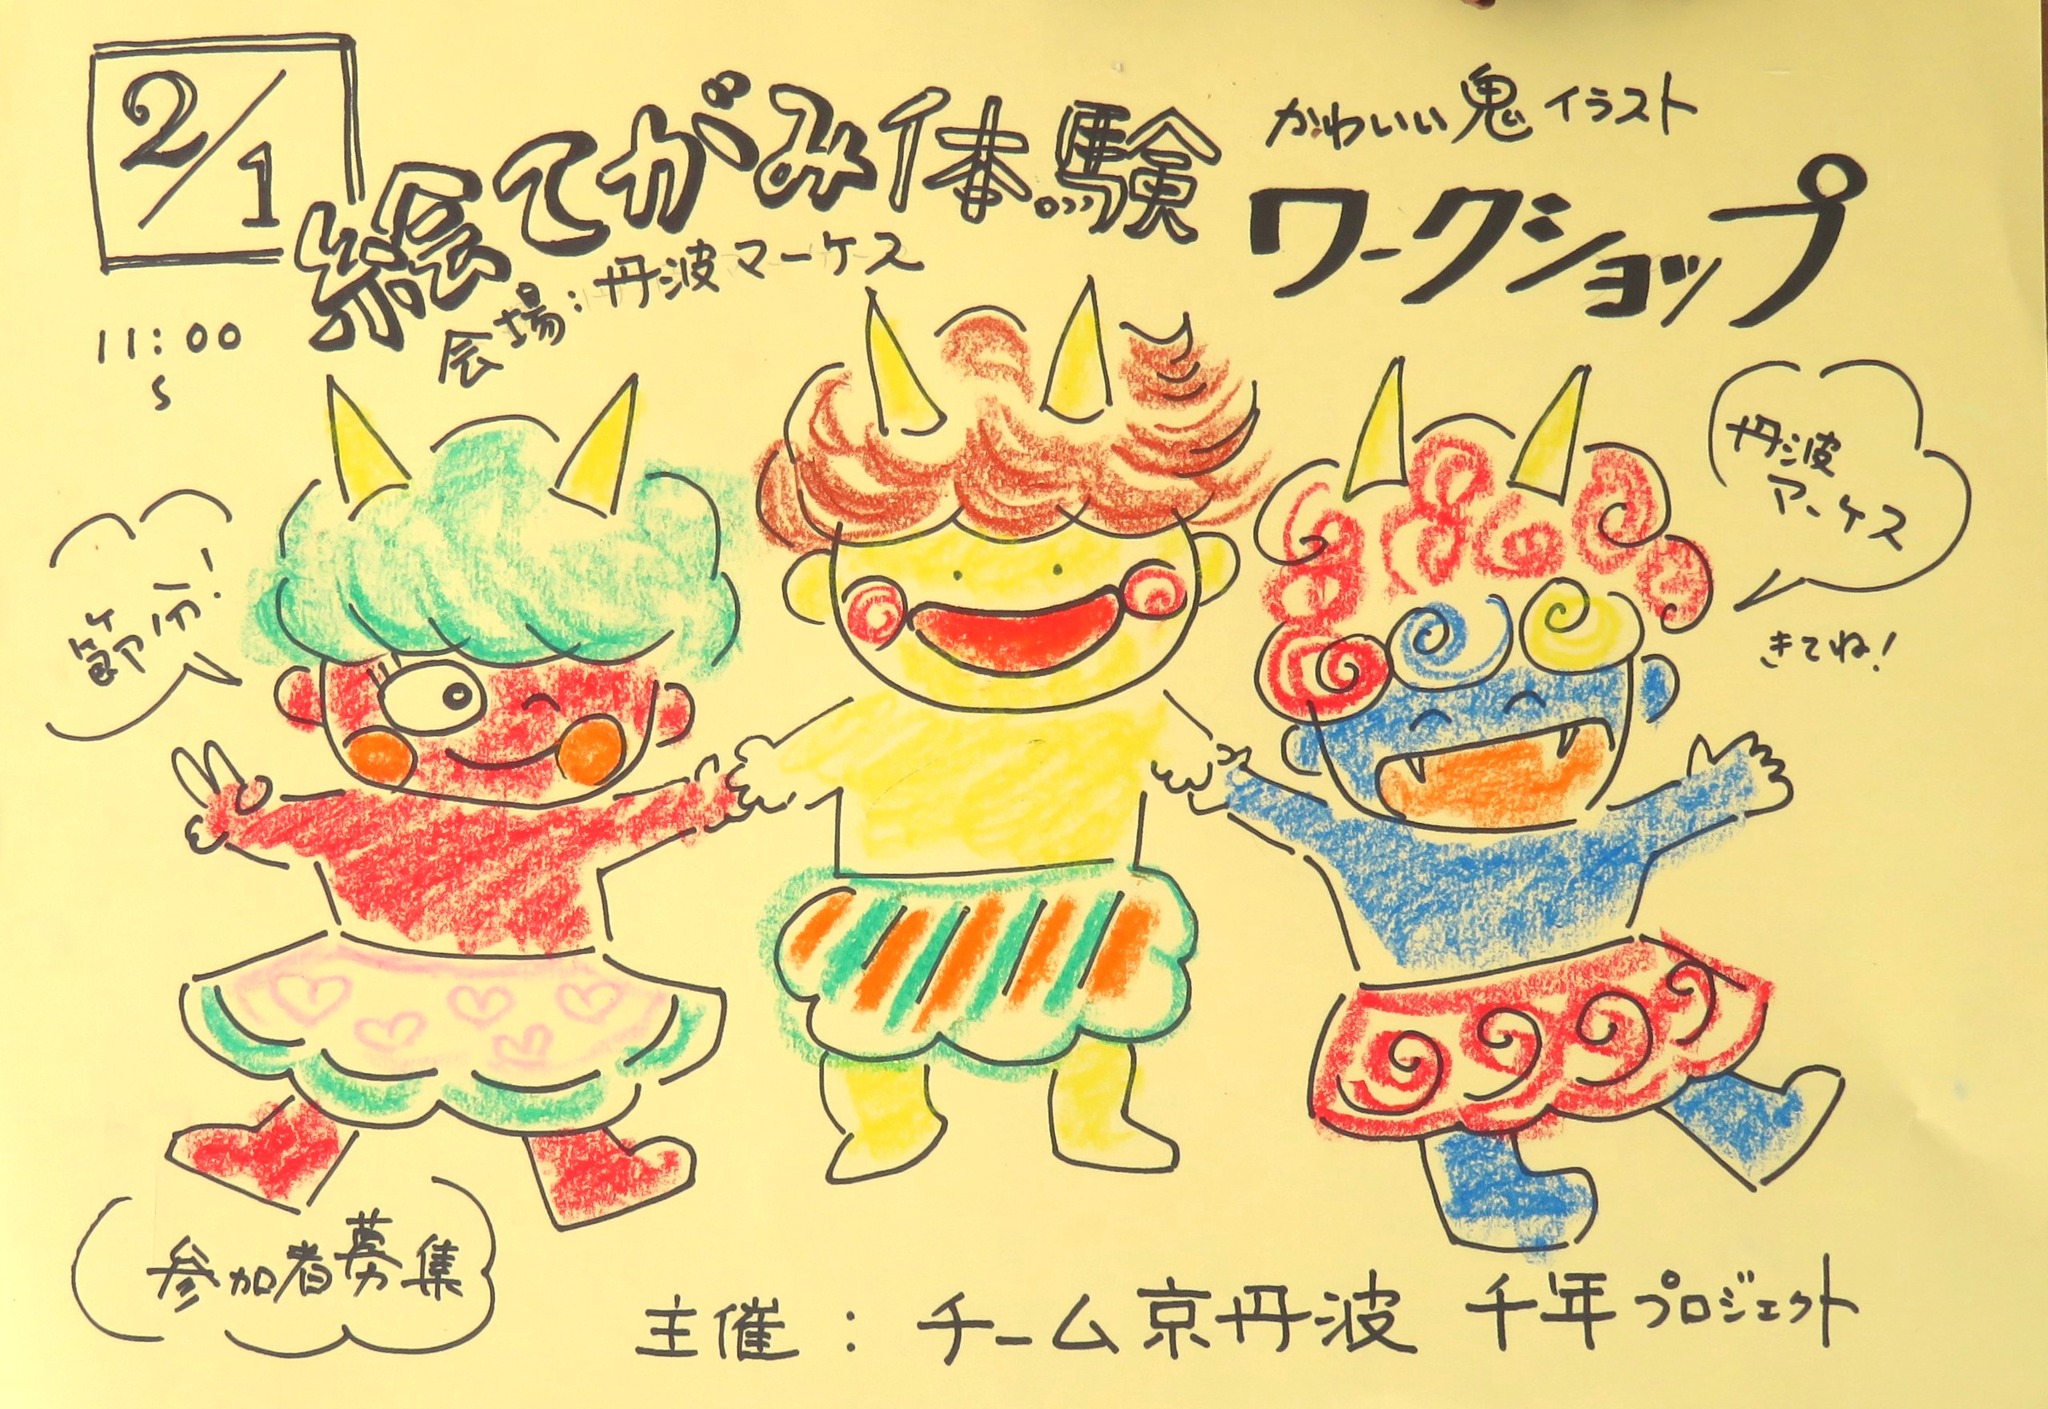 2/1
絵てがみ体験
かわいい鬼イラスト
ワークショップ
会場:丹波マーケス
11:00
~
節分!
丹波
マーケス
きてね!
参加者募集
主催:チーム京丹波 千年プロジェクト